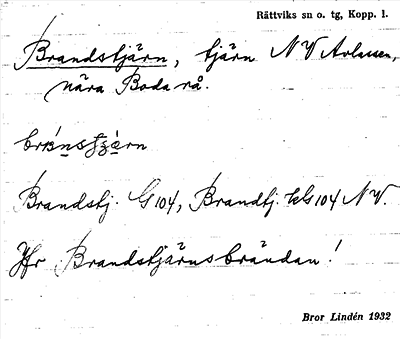 Rättviks sn o. tg, Kopp. l.
Brandstjärn, tjärn NV Arlassen,
nära Boda rå.
Brandstj. G 104, Brandtj. kG 104 NV.
Jfr Brandstjärnsbrändan!
Bror Lindén 1932